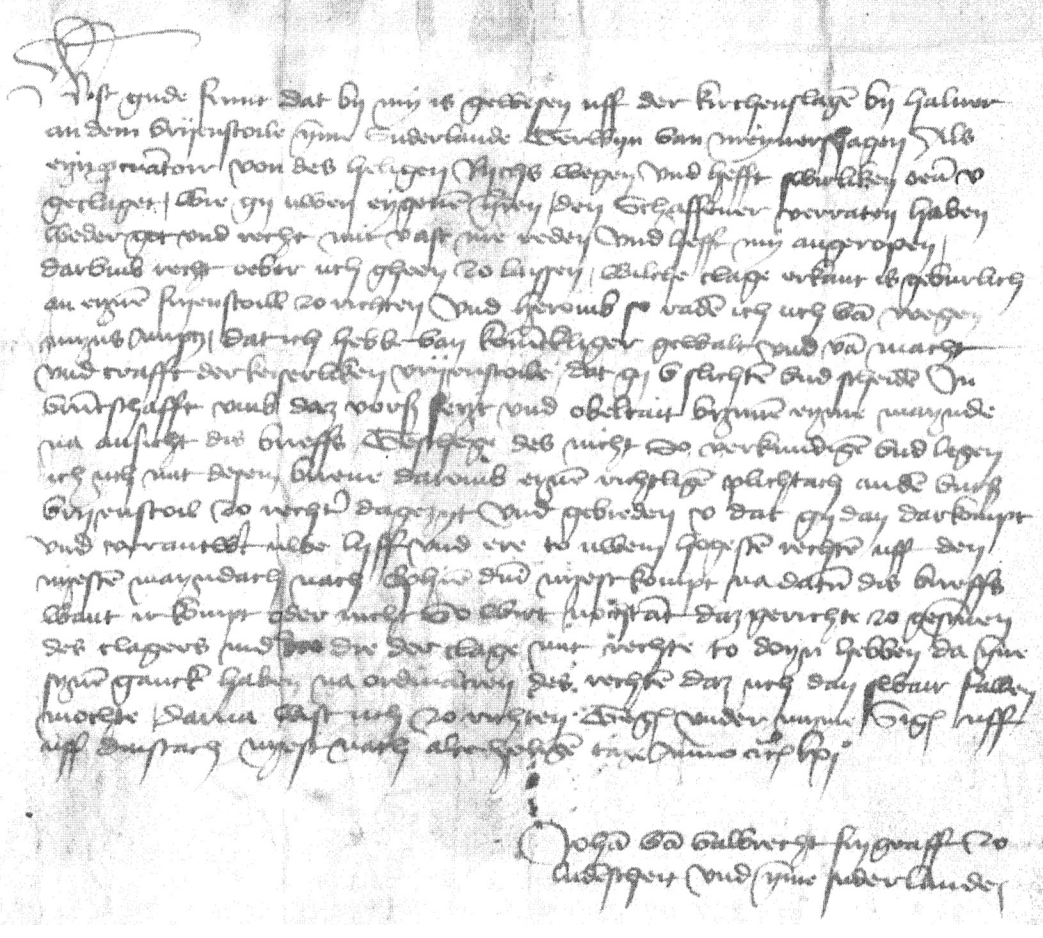 Wist gude frunt dat by my is gewesen uff der kirchenslagē by halver
an dem vryenstoile yme Suderlande Gerwyn van meynershagen Als
eyn von des heligen Rychs wegen und hefft swerliken
geclaget, wie gy uwen eygenē hren, den Schaffener verraten haben
weder got und recht mit vast me reden Und hefft my angeropen,
darumb recht over uch gheen zo laissen, wilche clage erkant is geburlich
an eynē fryenstoill zo richten Und heromb so raden ich uch vā wegen
myns amptz, dat ich hebbe van konnikliger gewalt und vā macht
und crafft der keiserliken vryenstoile, dat gy slichtē und scheidē In
vruntschafft umb daz vors bynnē eyme maynde
na ansicht dis brieffs Geschege des nicht So verkundigē und legen
ich uch mit desem brieve daromb eynē richtligē plichtach an den
vryenstoil zo rechtē dagezyt Und gebieden u dat gy dan dar kompt
und verantwert uwe lyff und ere to uwem hogestē rechtē uff den
nyestē mayndach nach nyest kompt na datū dis brieffs
want ir kompt oder nicht So wirt daz gerichte zo gesynnen
des clagers und die der clage mit rechte to doyn hebben da yne
synē ganck haben na ordinācien des rechtē daz uch dan swair fallen
mochte, darna wist uch zo richten Gegē under myme Sigel uff
uff dinstach nyest nach allerheligē tage Anno lxi°
Johā vā valbrecht frygraff zo
ludēscheit und yme suderlande